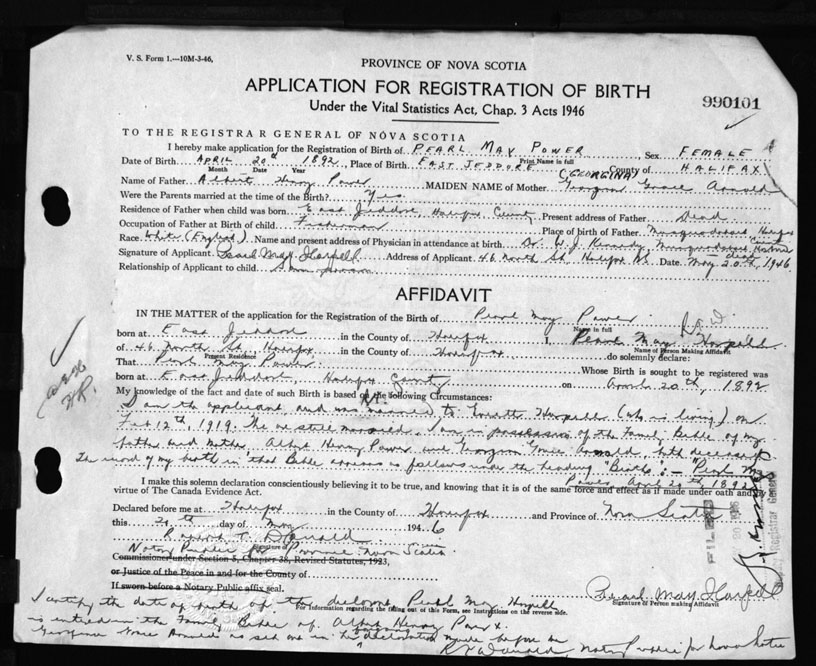 V. S. Form 1.—10M-3-46,
PROVINCE OF NOVA SCOTIA
APPLICATION FOR REGISTRATION OF BIRTH
Under the Vital Statistics Act, Chap. 3 Acts 1946
990101
TO THE REGISTRAR GENERAL OF NOVA SCOTIA
I hereby make application for the Registration of Birth of PEARL MAY POWER, Sex FEMALE
Print Name in full
Date of Birth APRIL 20th 1892, Place of Birth EAST JEDDORE County of HALIFAX
Month Date Year
(GEORGINA)
Name of Father Albert Henry Power MAIDEN NAME of Mother Grace Arnold
Were the Parents married at the time of the Birth? Yes
Residence of Father when child was born East Jeddore, Halifax County Present address of Father Dead
Occupation of Father at Birth of Child Fisherman Place of birth of Father Musquodoboit, Halifax County
Race White (English) Name and present address of Physician in attendance at birth Dr. W. J. Kennedy, Musquodoboit Harbour dead
Signature of Applicant Pearl May Harpell Address of Applicant 46 North St, Halifax NS. Date May 20th, 1946
Relationship of Applicant to child
AFFIDAVIT
IN THE MATTER of the application for the Registration of the Birth of Pearl May Power
Name in full
born at East Jeddore in the County of Halifax I, Pearl May Harpell
Name of Person Making Affidavit
of 46 North St, Halifax in the County of Halifax do solemnly declare:
Present Residence
That Pearl May Power Whose Birth is sought to be registered was
born at East Jeddore, Halifax County on April 20th, 1892
My knowledge of the fact and date of such Birth is based on the following Circumstances:
I am the applicant and was married to Harpell (who is living) on
Feb 12th, 1919. I am in possession of the Family Bible of my
father and mother Albert Henry Power and Arnold, both deceased
The record of my birth in that Bible appears as follows under the heading "Births": — "Pearl May
Power April 20th, 1892"
I make this solemn declaration conscientiously believing it to be true, and knowing that it is of the same force and effect as if made under oath and by
virtue of The Canada Evidence Act.
Declared before me at Halifax in the County of Halifax and Province of Nova Scotia
this 20th day of May 1946
Donald
Signature of
Notary Public for Province Nova Scotia
Commissioner under Section 5, Chapter 38, Revised Statutes, 1923,
or Justice of the Peace in and for the County of
If sworn before a Notary Public affix seal.
Pearl May Harpell
Signature of Person making Affidavit
For Information regarding the filling out of this Form, see Instructions on the reverse side.
I certify the date of birth of the declarant Pearl May Harpell
is entered in the Family Bible of Albert Henry Power &
Arnold as set out in the declaration made before me
Notary Public for Nova Scotia